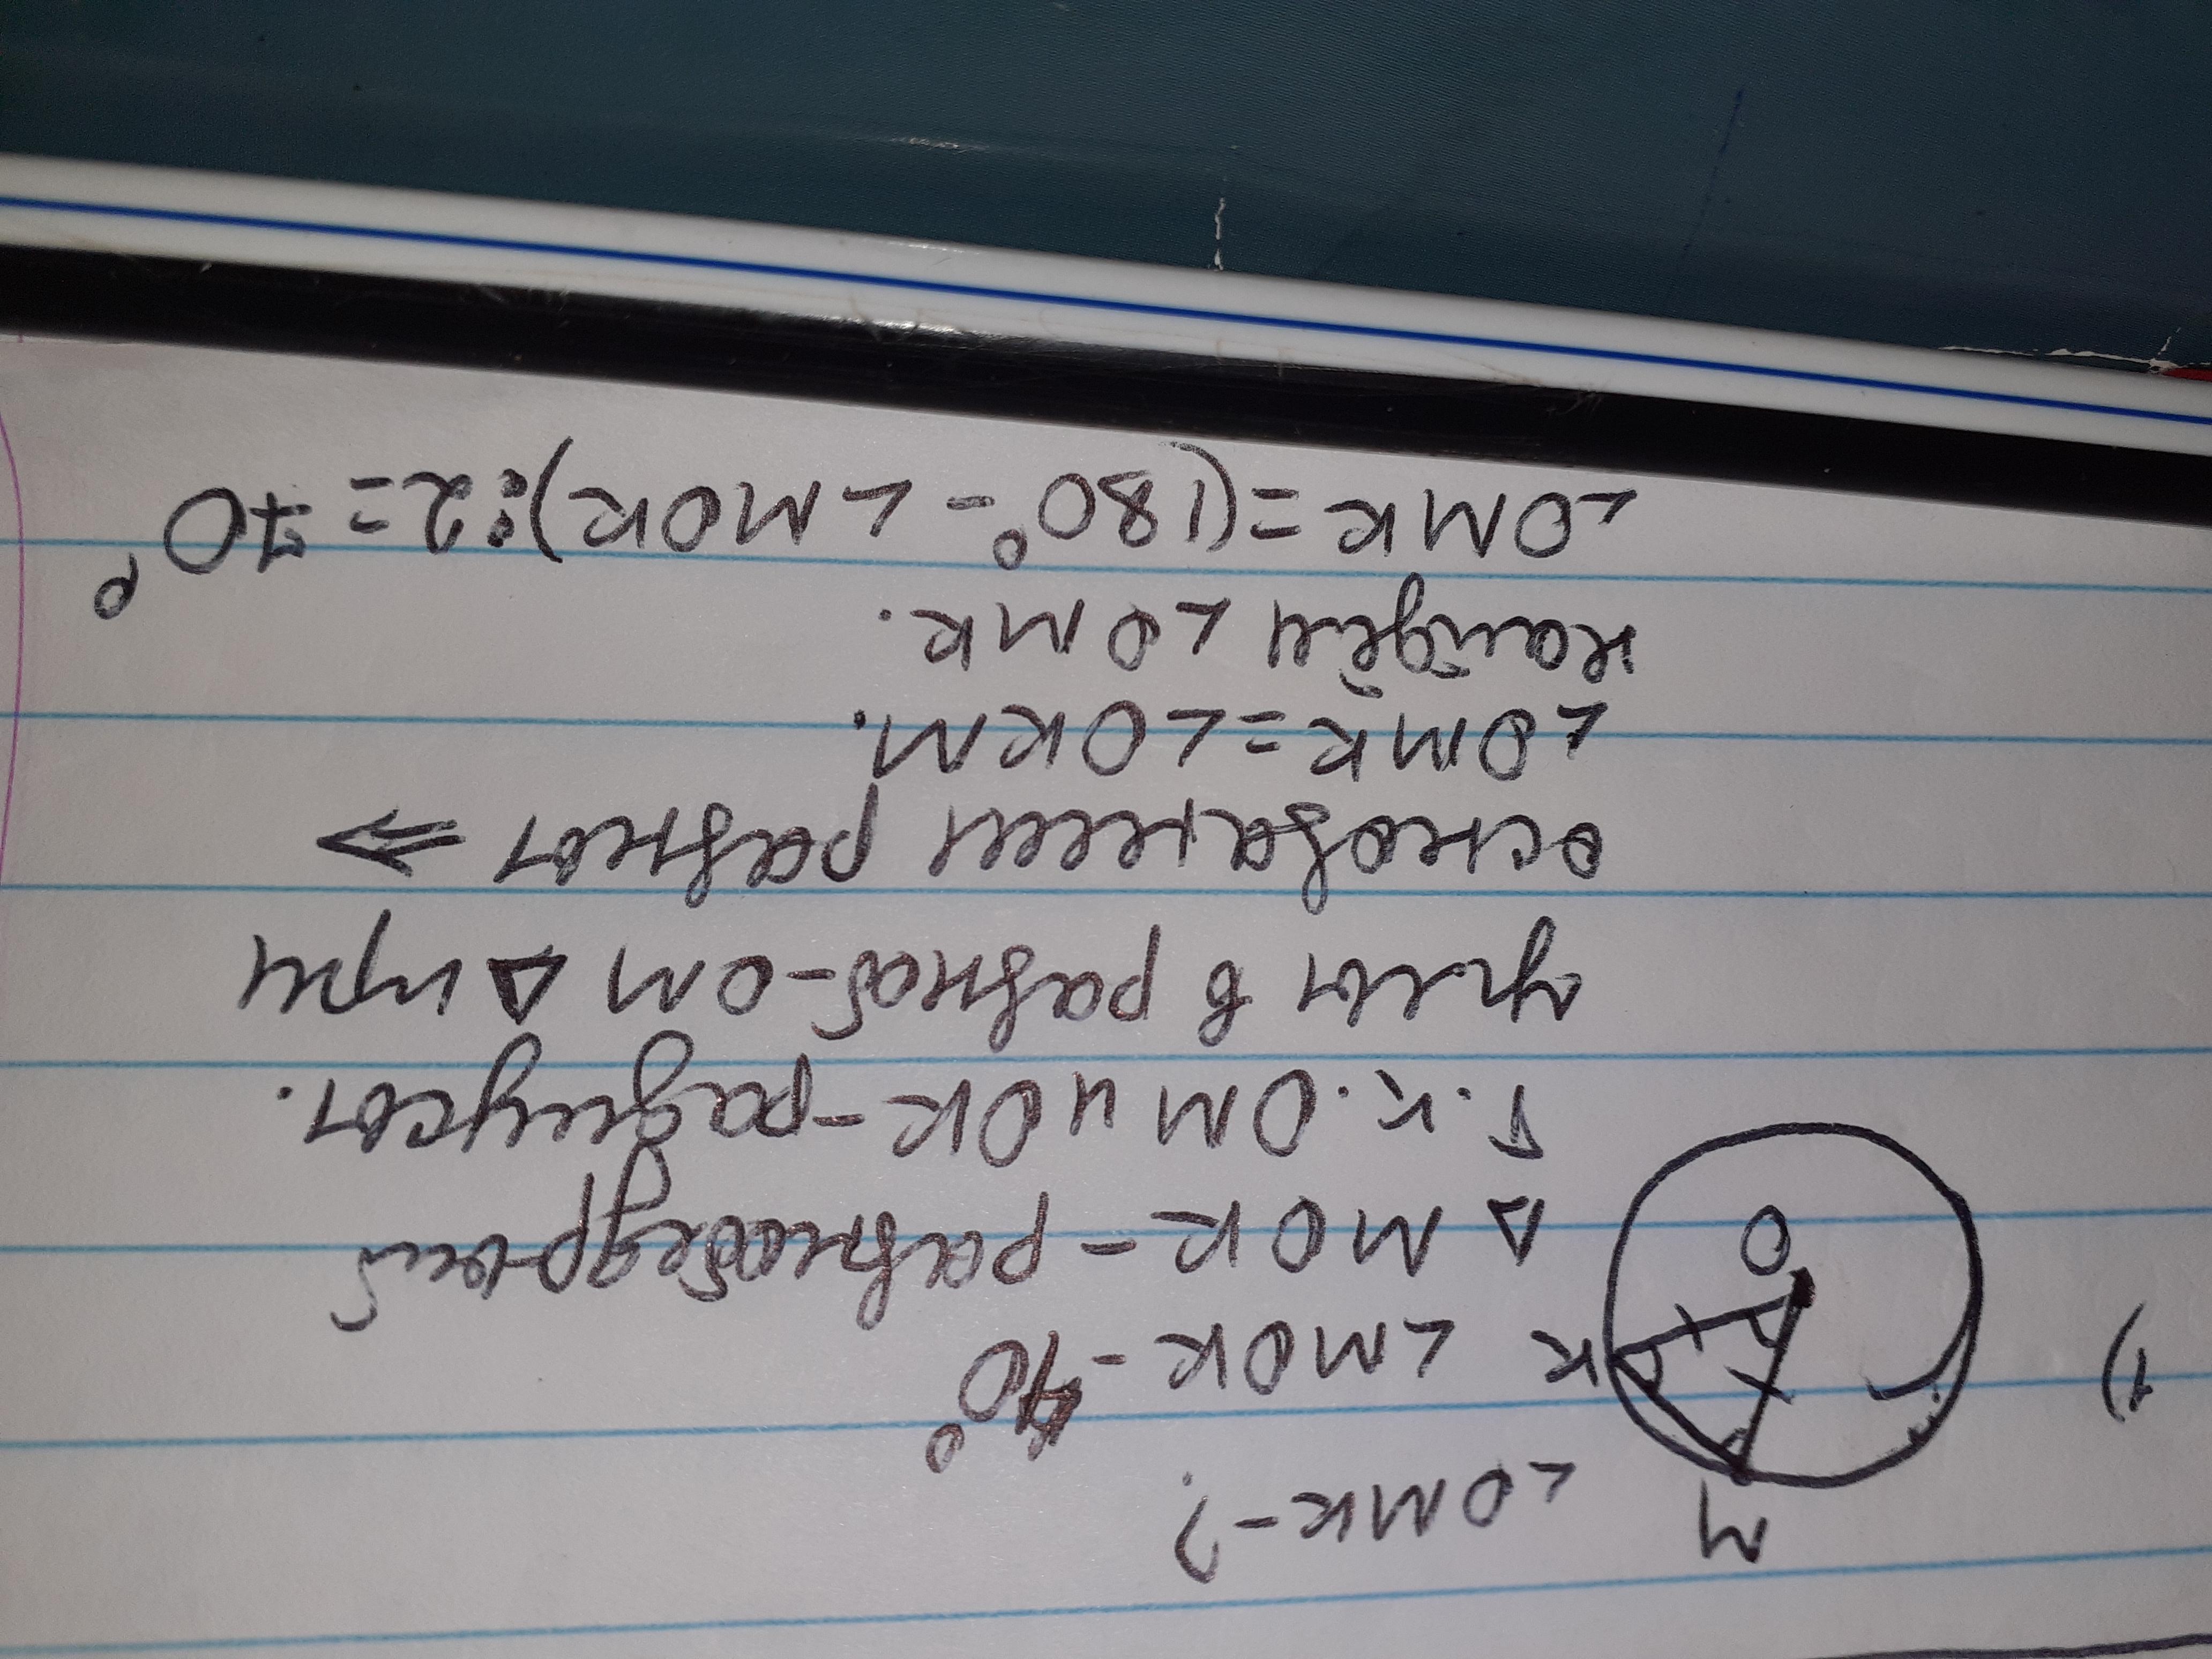 1)
M
∠OMK-?
K ∠MOK - 40°
O
△ MOK - равнобедрен
т.к. OM и OK - радиусы.
углы в равноб-ом △ при
основании равны ⇒
∠OMK = ∠OKM.
найдём ∠OMK.
∠OMK = (180° - ∠MOK):2 = 70°